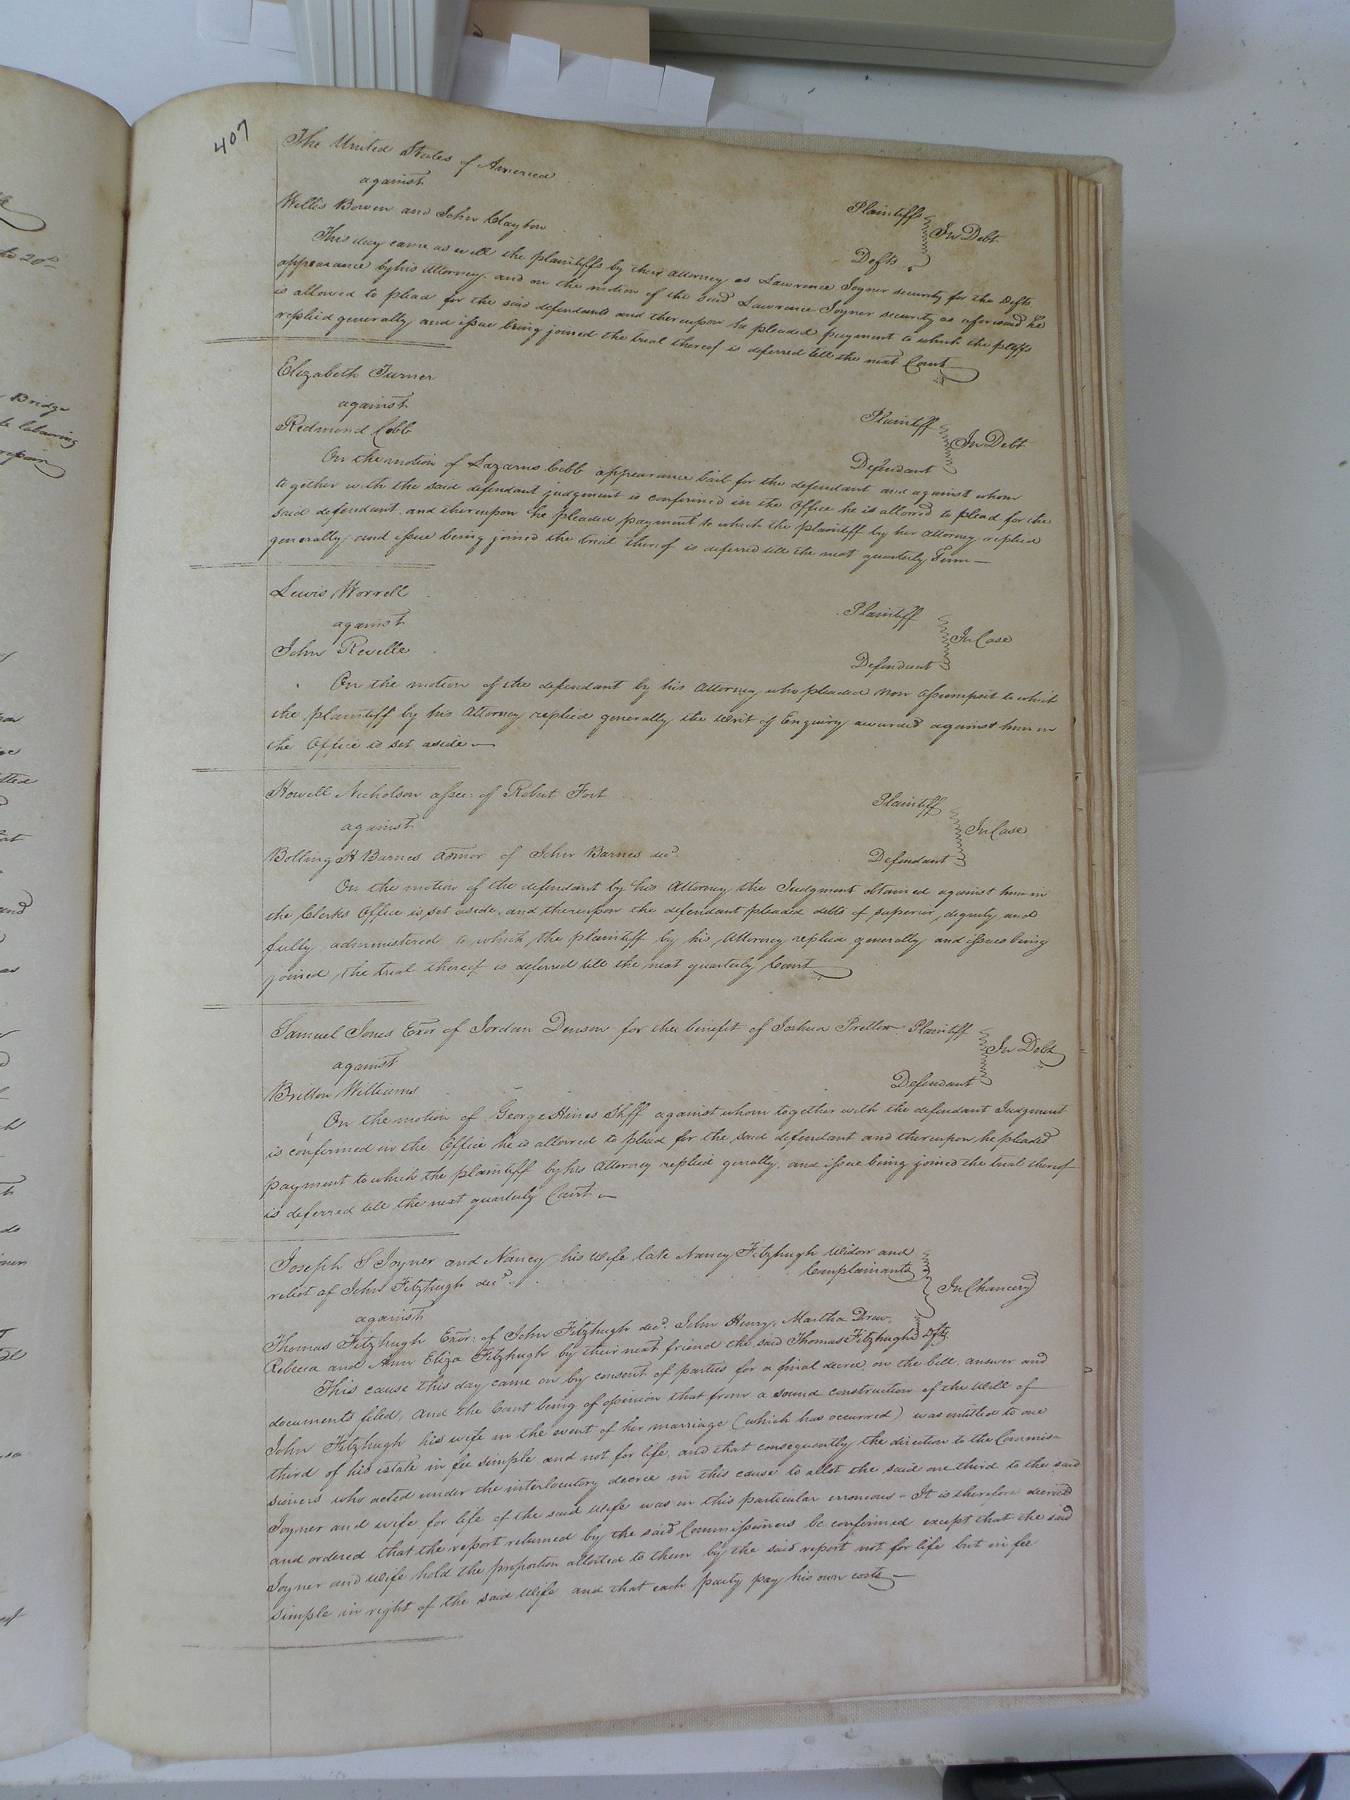 407
The United States of America
Plaintiffs
against
In Debt
Willis Bowen and John Clayton
Defts
This day came as well the plaintiffs by their attorney as Lawrence Joyner security for the Defts
appearance by his Attorney, and on the motion of the said Lawrence Joyner security as aforesaid he
is allowed to plead for the said defendants and thereupon he pleaded payment to which the pltffs
replied generally and issue being joined the trial thereof is deferred till the next Court
Elizabeth Turner
Plaintiff
against
In Debt
Redmond Cobb
Defendant
On the motion of Lazarus Cobb appearance bail for the defendant and against whom
together with the said defendant judgment is confirmed in the Office he is allowed to plead for the
said defendant, and thereupon he pleaded payment to which the plaintiff by her Attorney replied
generally and issue being joined the trial thereof is deferred till the next quarterly Term —
Lewis Worrell
Plaintiff
against
In Case
John Revelle
Defendant
On the motion of the defendant by his Attorney who pleaded non assumpsit to which
the plaintiff by his Attorney replied generally the Writ of Enquiry awarded against him in
the Office is set aside —
Howell Nicholson assee: of Robert Fort
Plaintiff
against
In Case
Bolling H Barnes admor of John Barnes decd.
Defendant
On the motion of the defendant by his Attorney the Judgment obtained against him in
the Clerks Office is set aside, and thereupon the defendant pleaded debts of superior dignity and
fully administered to which the plaintiff by his Attorney replied generally and issues being
joined the trial thereof is deferred till the next quarterly Court
Samuel Jones Exor of Jordan Denson for the benefit of Joshua Pretlow Plaintiff
against
In Debt
Britton Williams
Defendant
On the motion of George Hines Shff against whom together with the defendant Judgment
is confirmed in the Office he is allowed to plead for the said defendant and thereupon he pleaded
payment to which the plaintiff by his Attorney replied genally, and issue being joined the trial thereof
is deferred till the next quarterly Court —
Joseph S Joyner and Nancy his Wife late Nancy Fitzhugh Widow and
relict of John Fitzhugh decd.
Complainants
In Chancery
against
Thomas Fitzhugh Exor: of John Fitzhugh decd. John Henry, Martha Drew,
Rebeca and Ann Eliza Fitzhugh by their next friend the said Thomas Fitzhugh Dfts.
This cause this day came on by consent of parties for a final decree, on the bill, answer and
documents filed, And the Court being of opinion that from a sound construction of the Will of
John Fitzhugh his wife in the event of her marriage (which has occurred) was entitled to one
third of his estate in fee simple and not for life, and that consequently the direction to the Commis=
sioners who acted under the interlocutory decree in this cause to allot the said one third to the said
Joyner and wife for life of the said Wife was in this particular erroneous – It is therefore decreed
and ordered that the report returned by the said Commissioners be confirmed except that the said
Joyner and Wife hold the proportion allotted to them by the said report not for life but in fee
simple in right of the said Wife and that each party pay his own costs —